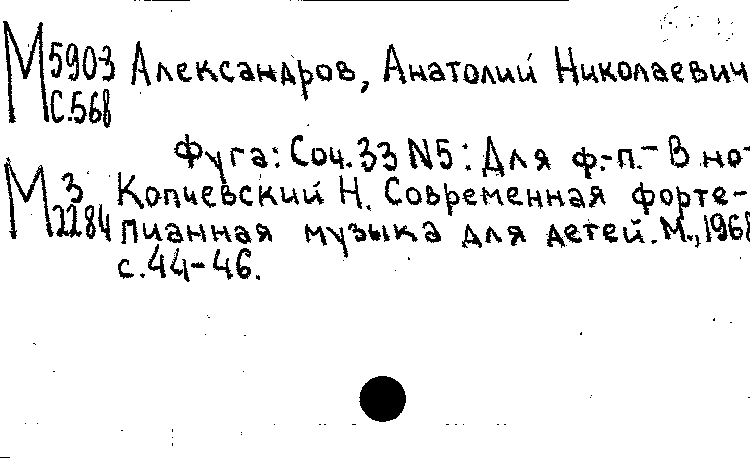 М 5903 Александров, Анатолий Николаевич
С.568
Фуга: Соч. 33 N5: Для ф.-п. - В но-
М 3 Копчевский Н. Современная форте-
2284 пианная музыка для детей. М., 1968
с. 44-46.